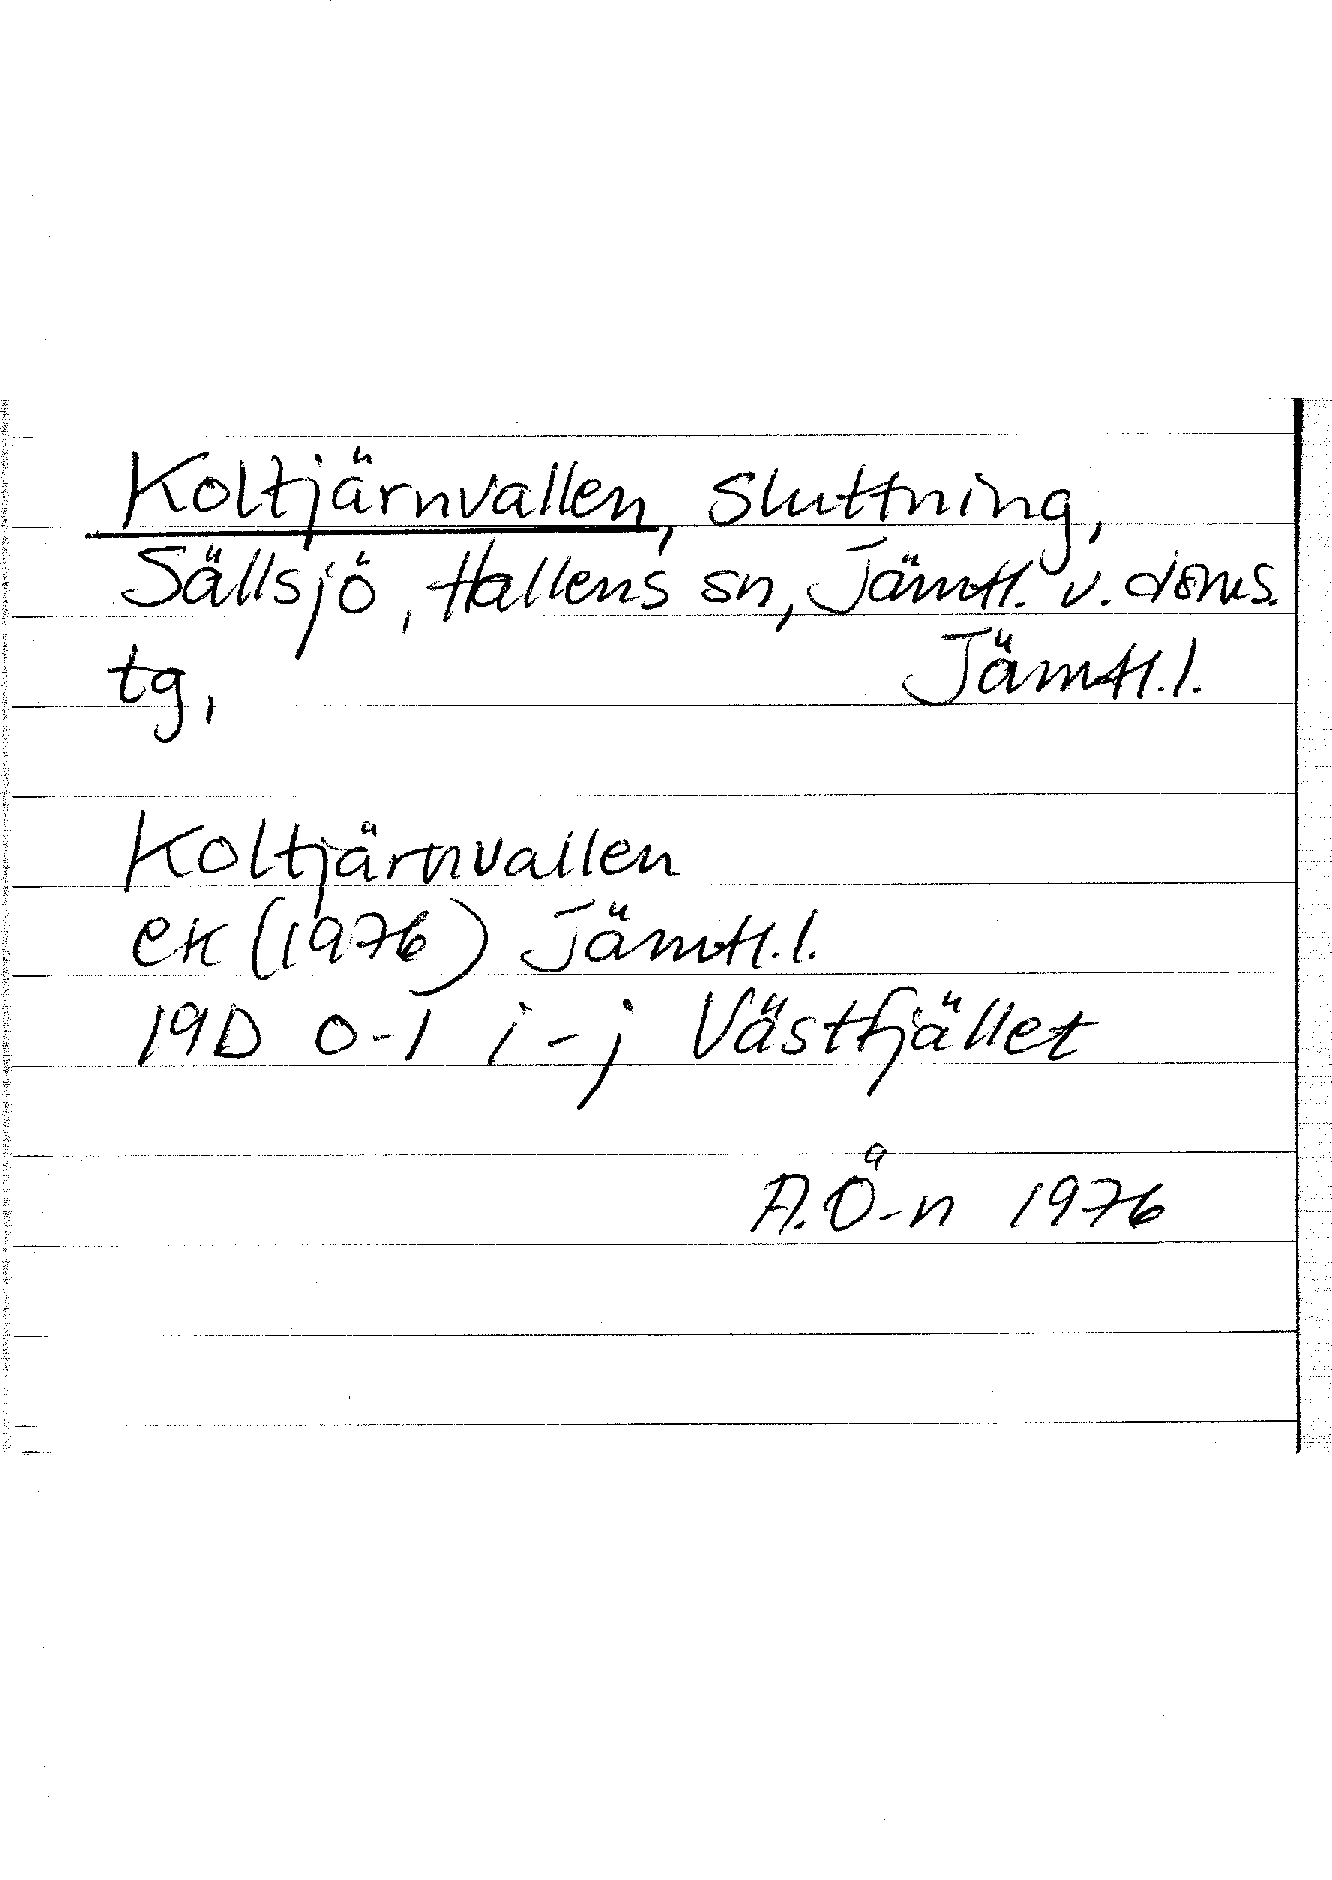 Koltjärnvallen, sluttning,
Sällsjö, Hallens sn, Jämtl. v. doms.
tg, Jämtl.l.
Koltjärnvallen
ek (1976) Jämtl.l.
19D 0-1 i-j Västfjället
A.Ö-n 1976